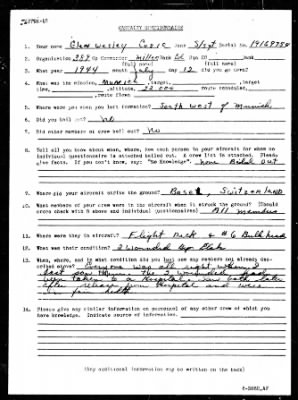 CASUALTY QUESTIONNAIRE
1. Your name Glen Wesley Rank S/Sgt Serial No.
2. Organization 389 Gp Commander Miller Rank Col Sqn CO
(full name) (full name)
3. What year 1944 month July day 12 did you go down?
4. What was the mission, Munich, target,
time, altitude, 22,000 route scheduled,
route flown
5. Where were you when you left formation? South West of Munich
6. Did you bail out? No
7. Did other members of crew bail out? No
8. Tell all you know about when, where, how each person in your aircraft for whom no
individual questionnaire is attached bailed out. A crew list is attached. Please
give facts. If you don't know, say: "No Knowledge". none Bailed Out
9. Where did your aircraft strike the ground? Basel, Switzerland
10. What members of your crew were in the aircraft when it struck the ground? (Should
cross check with 8 above and individual questionnaires) All Members
11. Where were they in aircraft? Flight Deck & #6 Bulkhead
12. What was their condition? 2 Wounded by Flak
13. When, where, and in what condition did you last see any members not already des-
cribed above? Everyone was all right when I
last saw them. The 2 wounded
were taken to a Hospital. I saw both later
after release from Hospital and were
in fair health
14. Please give any similar information on personnel of any other crew of which you
have knowledge. Indicate source of information.
(Any additional information may be written on the back)
6-3862,AF